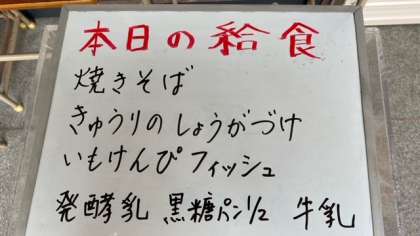 本日の給食
焼きそば
きゅうりのしょうがづけ
いもけんぴフィッシュ
発酵乳 黒糖パン1/2 牛乳